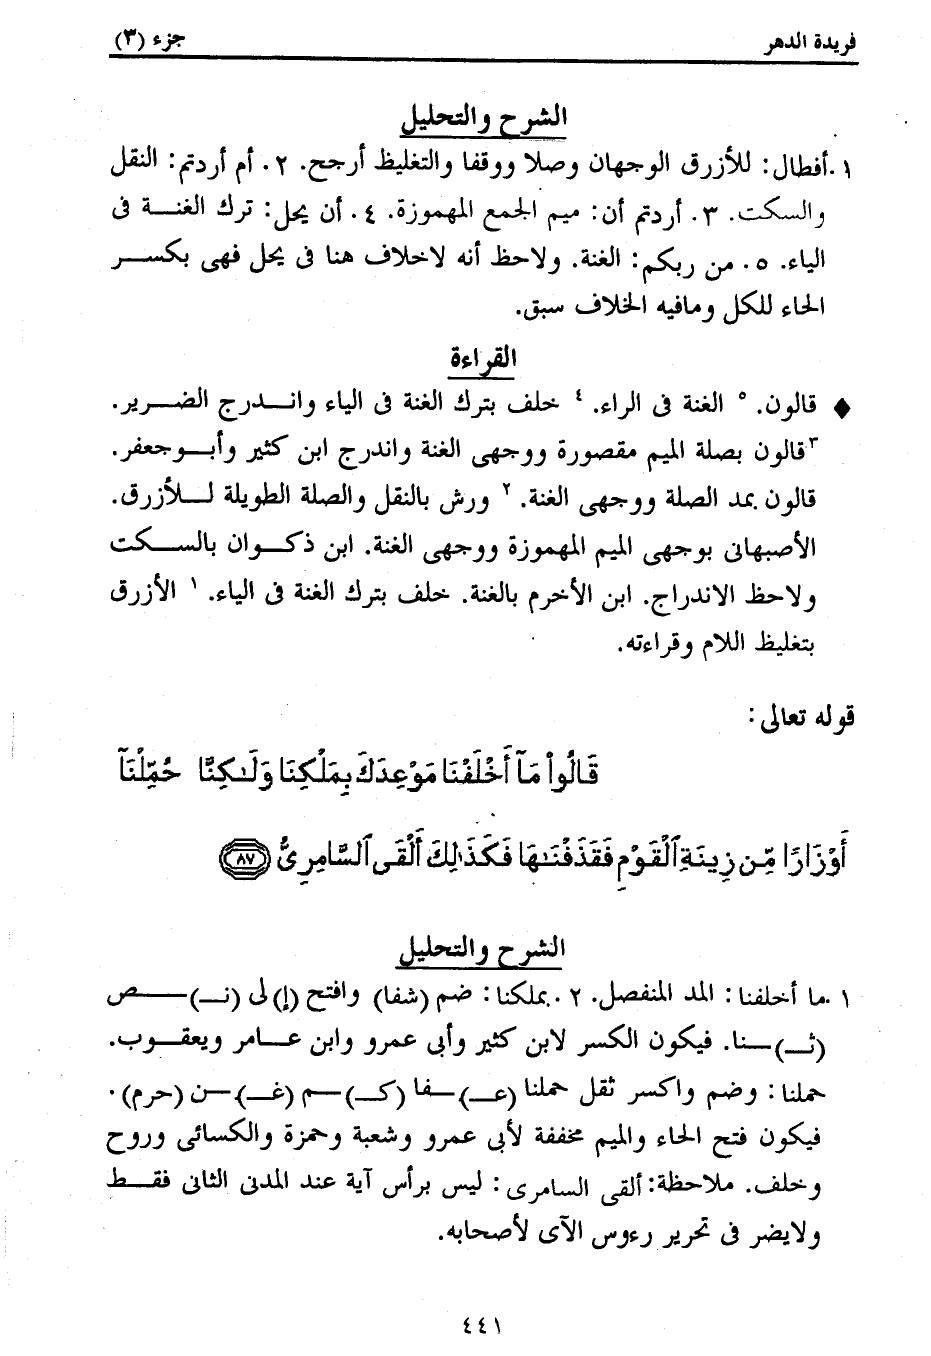 فريدة الدهر جزء (٣)
الشرح والتحليل
١.أفطال: للأزرق الوجهان وصلا ووقفا والتغليظ أرجح. ٢. أم أردتم: النقل
والسكت. ٣. أردتم أن: ميم الجمع المهموزة. ٤. أن يحل: ترك الغنــة فى
الياء. ٥. من ربكم: الغنة. ولاحظ أنه لاخلاف هنا فى يحل فهى بكســر
الحاء للكل ومافيه الخلاف سبق.
القراءة
♦ قالون. ٥ الغنة فى الراء. ٤ خلف بترك الغنة فى الياء وانــدرج الضـرير.
٣قالون بصلة الميم مقصورة ووجهى الغنة واندرج ابن كثير وأبــوجعفر.
قالون بمد الصلة ووجهى الغنة. ٢ ورش بالنقل والصلة الطويلة لــلأزرق.
الأصبهانى بوجهى الميم المهموزة ووجهى الغنة. ابن ذكــوان بالسـكت
ولاحظ الاندراج. ابن الأخرم بالغنة. خلف بترك الغنة فى الياء. ١ الأزرق
بتغليظ اللام وقراءته.
قوله تعالى:
قَالُوا۟ مَآ أَخْلَفْنَا مَوْعِدَكَ بِمَلْكِنَا وَلَـٰكِنَّا حُمِّلْنَآ
أَوْزَارًا مِّن زِينَةِ ٱلْقَوْمِ فَقَذَفْنَـٰهَا فَكَذَٰلِكَ أَلْقَى ٱلسَّامِرِىُّ ٨٧
الشرح والتحليل
١.ما أخلفنا: المد المنفصل. ٢.بملكنا: ضم (شفا) وافتح (إ)لى (نــ)ــص
(ثــ)ــنا. فيكون الكسر لابن كثير وأبى عمرو وابن عــامر ويعقــوب.
حملنا: وضم واكسر ثقل حملنا (عــ)ــفا (كــ)ــم (غــ)ــن (حرم).
فيكون فتح الحاء والميم مخففة لأبى عمرو وشعبة وحمزة والكسائى وروح
وخلف. ملاحظة: ألقى السامرى: ليس برأس آية عند المدنى الثانى فقــط
ولايضر فى تحرير رءوس الآى لأصحابه.
٤٤١